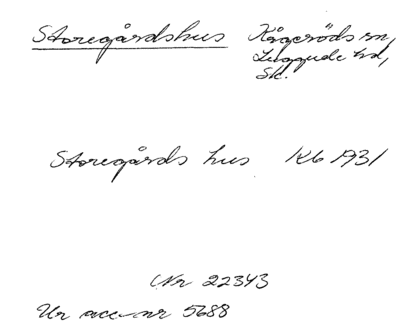 Storegårdshus Kågeröds sn,
Luggude hd,
Sk.
Storegårds hus Kb 1931
Nr 22343
Ur acc.nr 5688